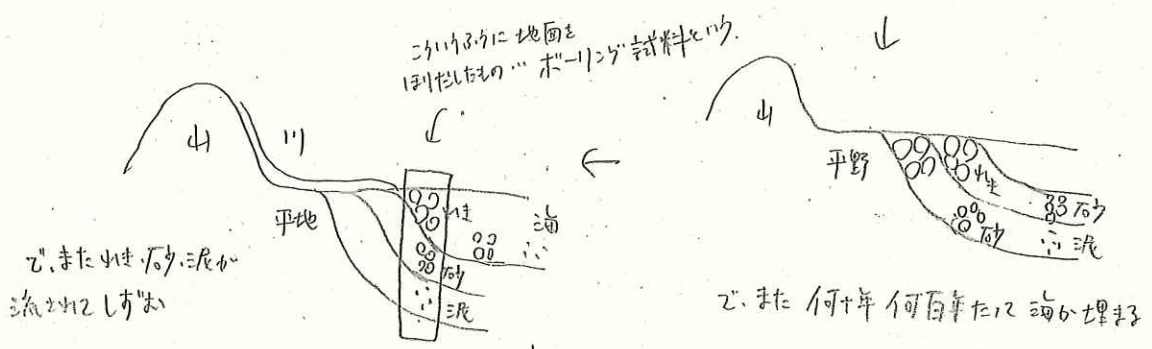 こういうふうに地面を
ほりだしたもの… ボーリング試料という.
山
川
平地
れき
砂
泥
海
で、またれき、砂、泥が
流されてしずむ
山
平野
れき
砂
砂
泥
で、また 何十年 何百年たって 海が埋まる